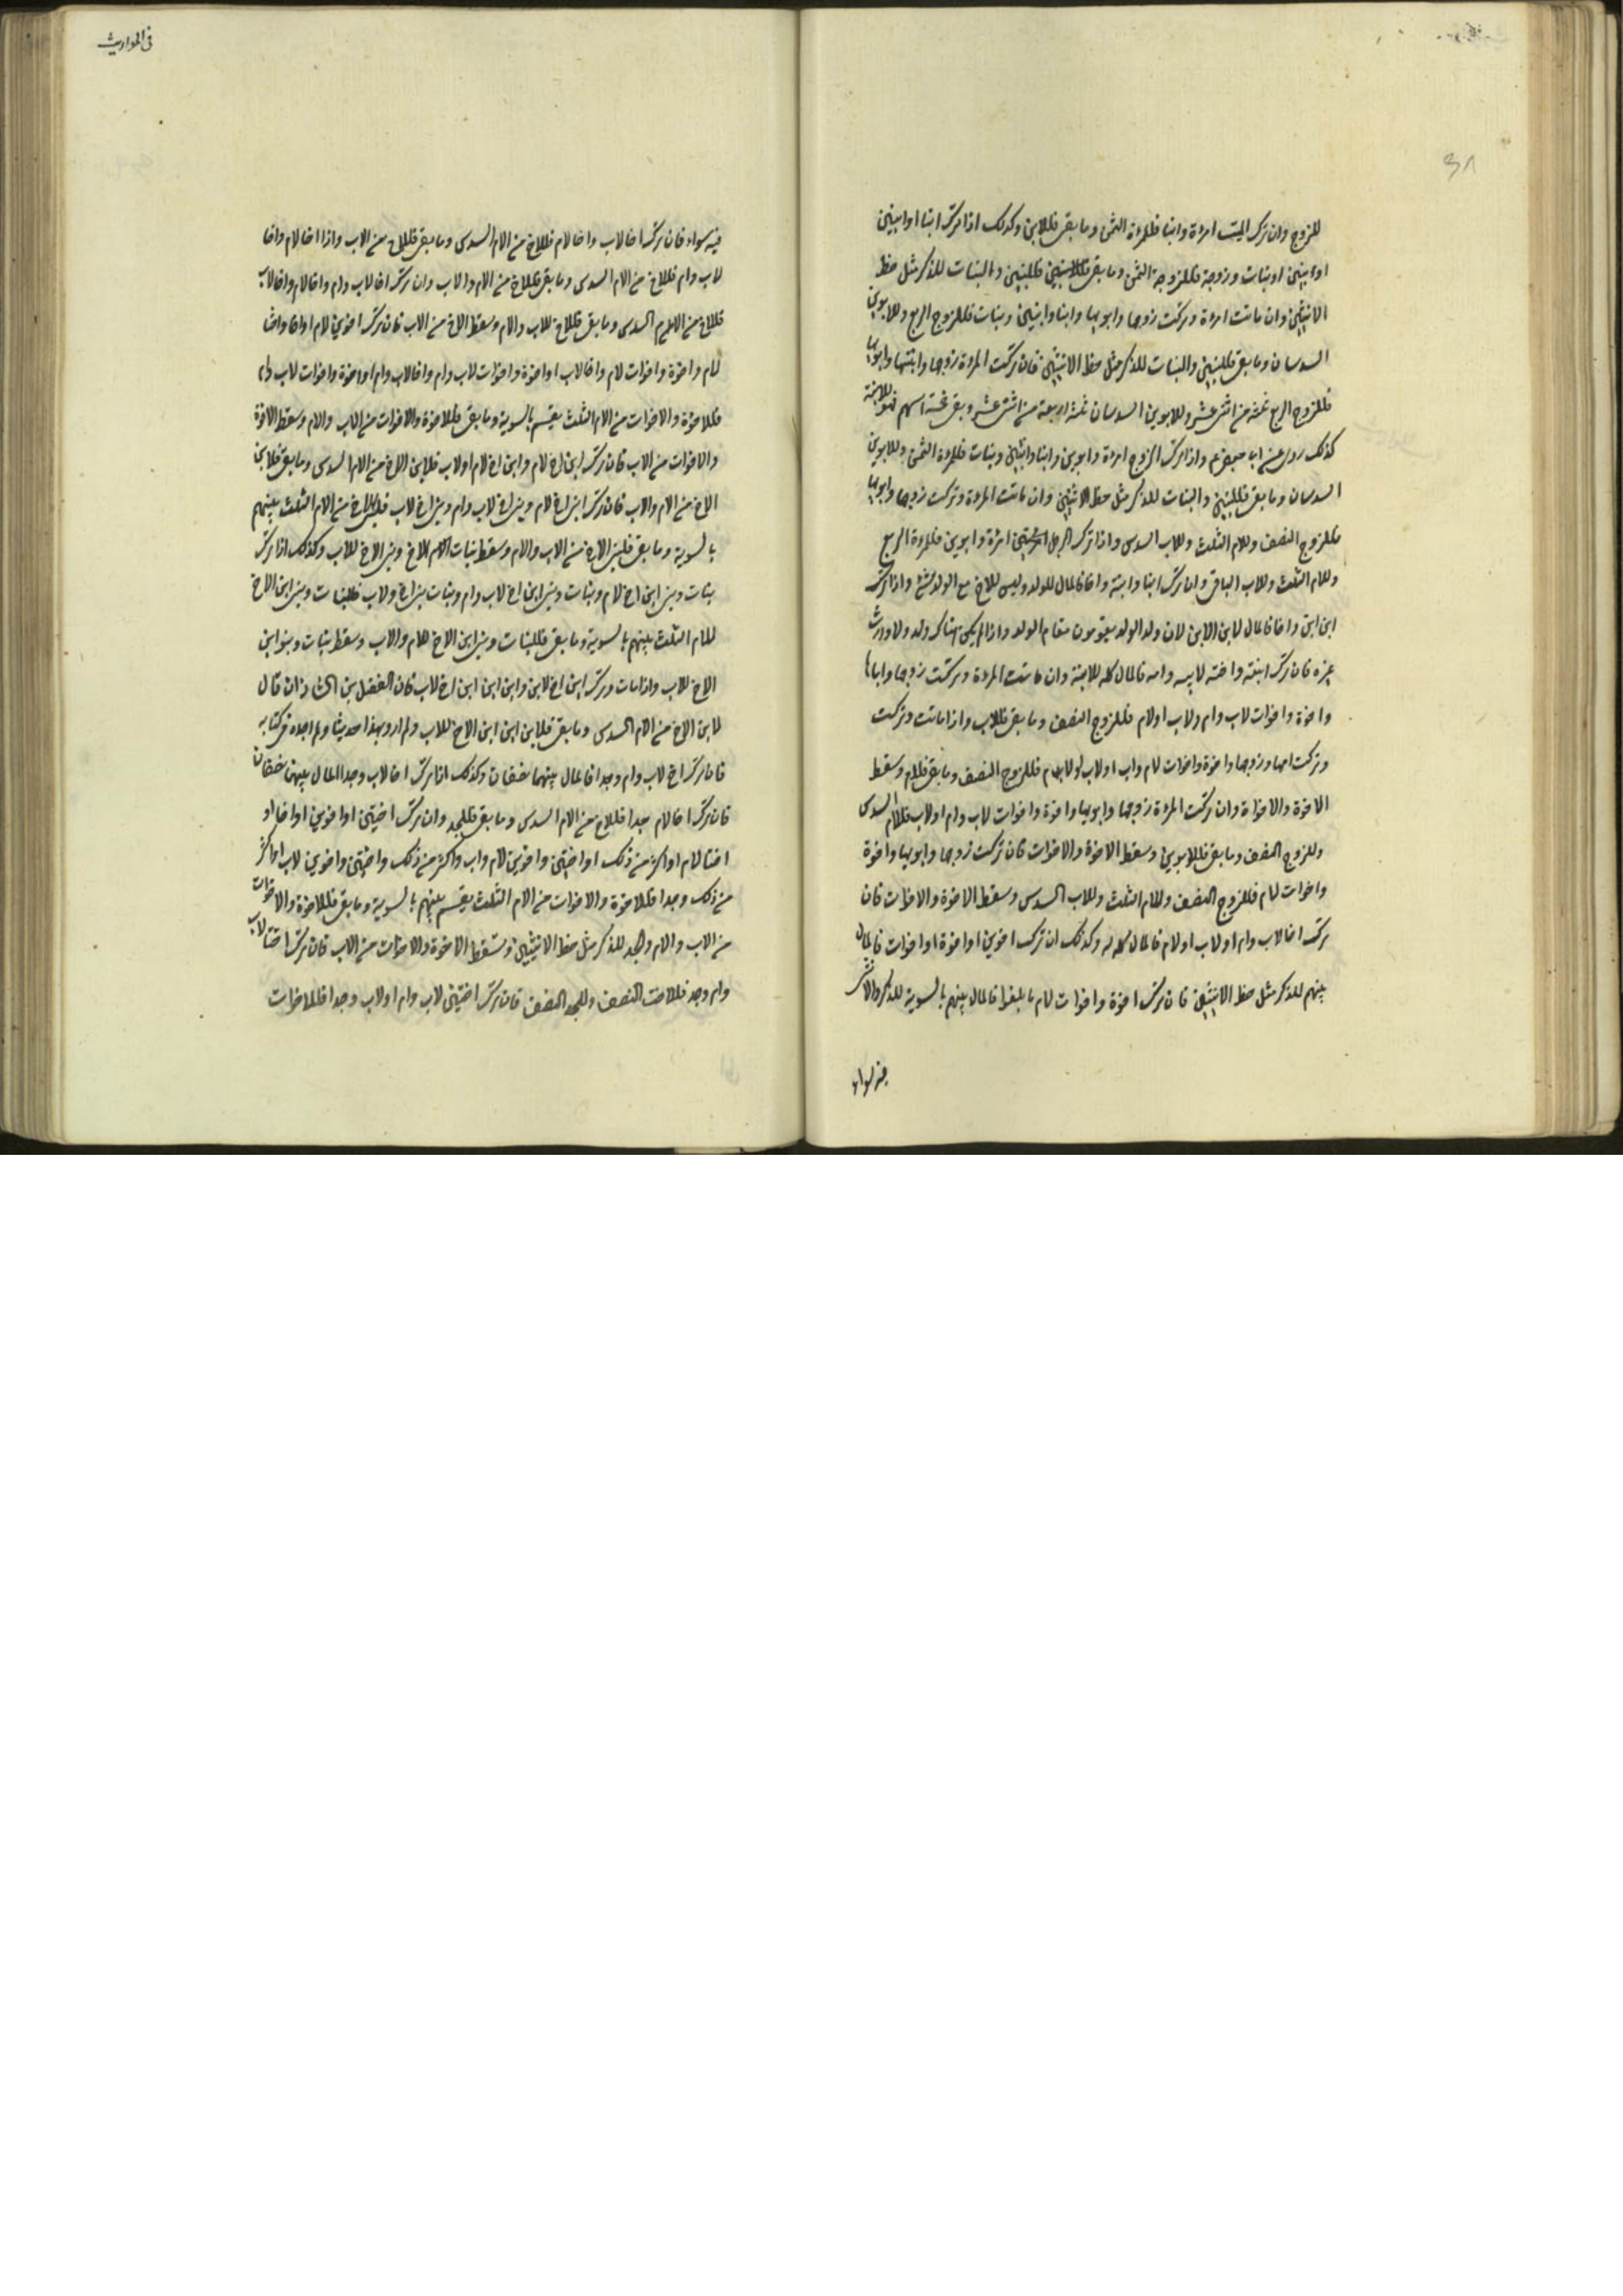 للزوج وان ترك الميت امراة وابنا فللمراة الثمن وما بقى فللابن وكذلك اذا ترك ابنا او ابنين
او ابنين او بنات وزوجة فللزوجة الثمن وما بقى فللبنين والبنات للذكر مثل حظ
الانثيين وان ماتت امراة وتركت زوجها وابويها وابنا وابنين وبنات فللزوج الربع وللابوين
السدسان وما بقى فللبنين والبنات للذكر مثل حظ الانثيين فان تركت المراة زوجها وابنتها وابويها
فللزوج الربع ثلثة من اثنى عشر وللابوين السدسان اربعة من اثنى عشر وبقى خمسة اسهم فهو للابنة
كذلك روى عن ابا جعفر ع واذا ترك الزوج امراة وابوين وابنا وابنين وبنات فللمراة الثمن وللابوين
السدسان وما بقى فللبنين والبنات للذكر مثل حظ الانثيين وان ماتت المراة وتركت زوجها وابويها
فللزوج النصف وللام الثلث وللاب السدس واذا ترك الرجل امراة وابوين فللمراة الربع
وللام الثلث وللاب الباقى وان ترك ابنا وابنة واخا فالمال للولد وليس للاخ مع الولد شئ واذا ترك
ابن ابن واخا فالمال لابن الابن لان ولد الولد يقومون مقام الولد واذا لم يكن هناك ولد ولا وارث
غيره فان ترك ابنته واخته لابيه وامه فالمال كله للابنة وان ماتت المراة وتركت زوجها واباها
واخوة واخوات لاب وام ولاب اولام فللزوج النصف وما بقى فللاب واذا ماتت وتركت
وتركت امها وزوجها واخوة واخوات لام واب اولاب فللزوج النصف وما بقى فللام وسقط
الاخوة والاخوات وان تركت المراة زوجها وابويها واخوة واخوات لاب وام اولاب فللام السدس
وللزوج النصف وما بقى فللابوين وسقط الاخوة والاخوات فان تركت زوجها وابويها واخوة
واخوات لام فللزوج النصف وللام الثلث وللاب السدس وسقط الاخوة والاخوات فان
ترك اخا لاب وام اولاب اولام فالمال كله له وكذلك ان ترك اخوين او اخوة او اخوات فالمال
بينهم للذكر مثل حظ الانثيين فان ترك اخوة واخوات لام ما بلغوا فالمال بينهم بالسوية للذكر والانثى
فيه سواء
فى المواريث
فيه سواء فان ترك اخا لاب واخا لام فللاخ من الام السدس وما بقى فللاخ من الاب واذا اخا لام واخا
لاب وام فللاخ من الام السدس وما بقى فللاخ من الام والاب وان ترك اخا لاب وام واخا لام واخا لاب
فللاخ من الام السدس وما بقى فللاخ للاب والام وسقط الاخ من الاب فان ترك اخوين لام او اخا واختا
لام واخوة واخوات لام واخا لاب او اخوة واخوات لاب وام واخا لاب وام او اخوة واخوات لاب
فللاخوة والاخوات من الام الثلث يقسم بالسوية وما بقى فللاخوة والاخوات من الاب والام وسقط الاخوة
والاخوات من الاب فان ترك ابن اخ لام وابن اخ لام اولاب فلابن الاخ من الام السدس وما بقى فلابن
الاخ من الام والاب فان ترك ابن اخ لام وبنى اخ لاب وام وبنى اخ لاب فلبنى الاخ من الام الثلث بينهم
بالسوية وما بقى فلبنى الاخ من الاب والام وسقط بنات الاخ وبنى الاخ للاب وكذلك اذا ترك
بنات وبنى ابن اخ لام وبنات وبنى ابن اخ لاب وام وبنات بنى اخ ولاب فللبنات وبنى ابن الاخ
للام الثلث بينهم بالسوية وما بقى فللبنات وبنى ابن الاخ للام والاب وسقط بنات وبنو ابن
الاخ للاب واذا مات وترك ابن اخ لابن وابن ابن ابن اخ لاب فان الفضل بن الشاذان قال
لابن الاخ من الام السدس وما بقى فلابن ابن ابن الاخ للاب ولم ارو بهذا حديثا ولم اجده فى كتابه
فان ترك اخ لاب وام وجدا فالمال بينهما نصفان وكذلك اذا ترك اخا لاب وجدا المال بينهن نصفان
فان ترك اخا لام جدا فللاخ من الام السدس وما بقى فللجد وان ترك اختين او اخوين او اخا او
اختا لام او اكثر من ذلك او اختين واخوين لام واب واكثر من ذلك واختين واخوين لاب او اكثر
من ذلك وجدا فللاخوة والاخوات من الام الثلث يقسم بينهم بالسوية وما بقى فللاخوة والاخوات
من الاب والام والجد للذكر مثل حظ الانثيين وتسقط الاخوة والاخوات من الاب فان ترك اختا لاب
وام وجد فللاخت النصف وللجد النصف فان ترك اختين لاب وام اولاب وجدا فللاخوات